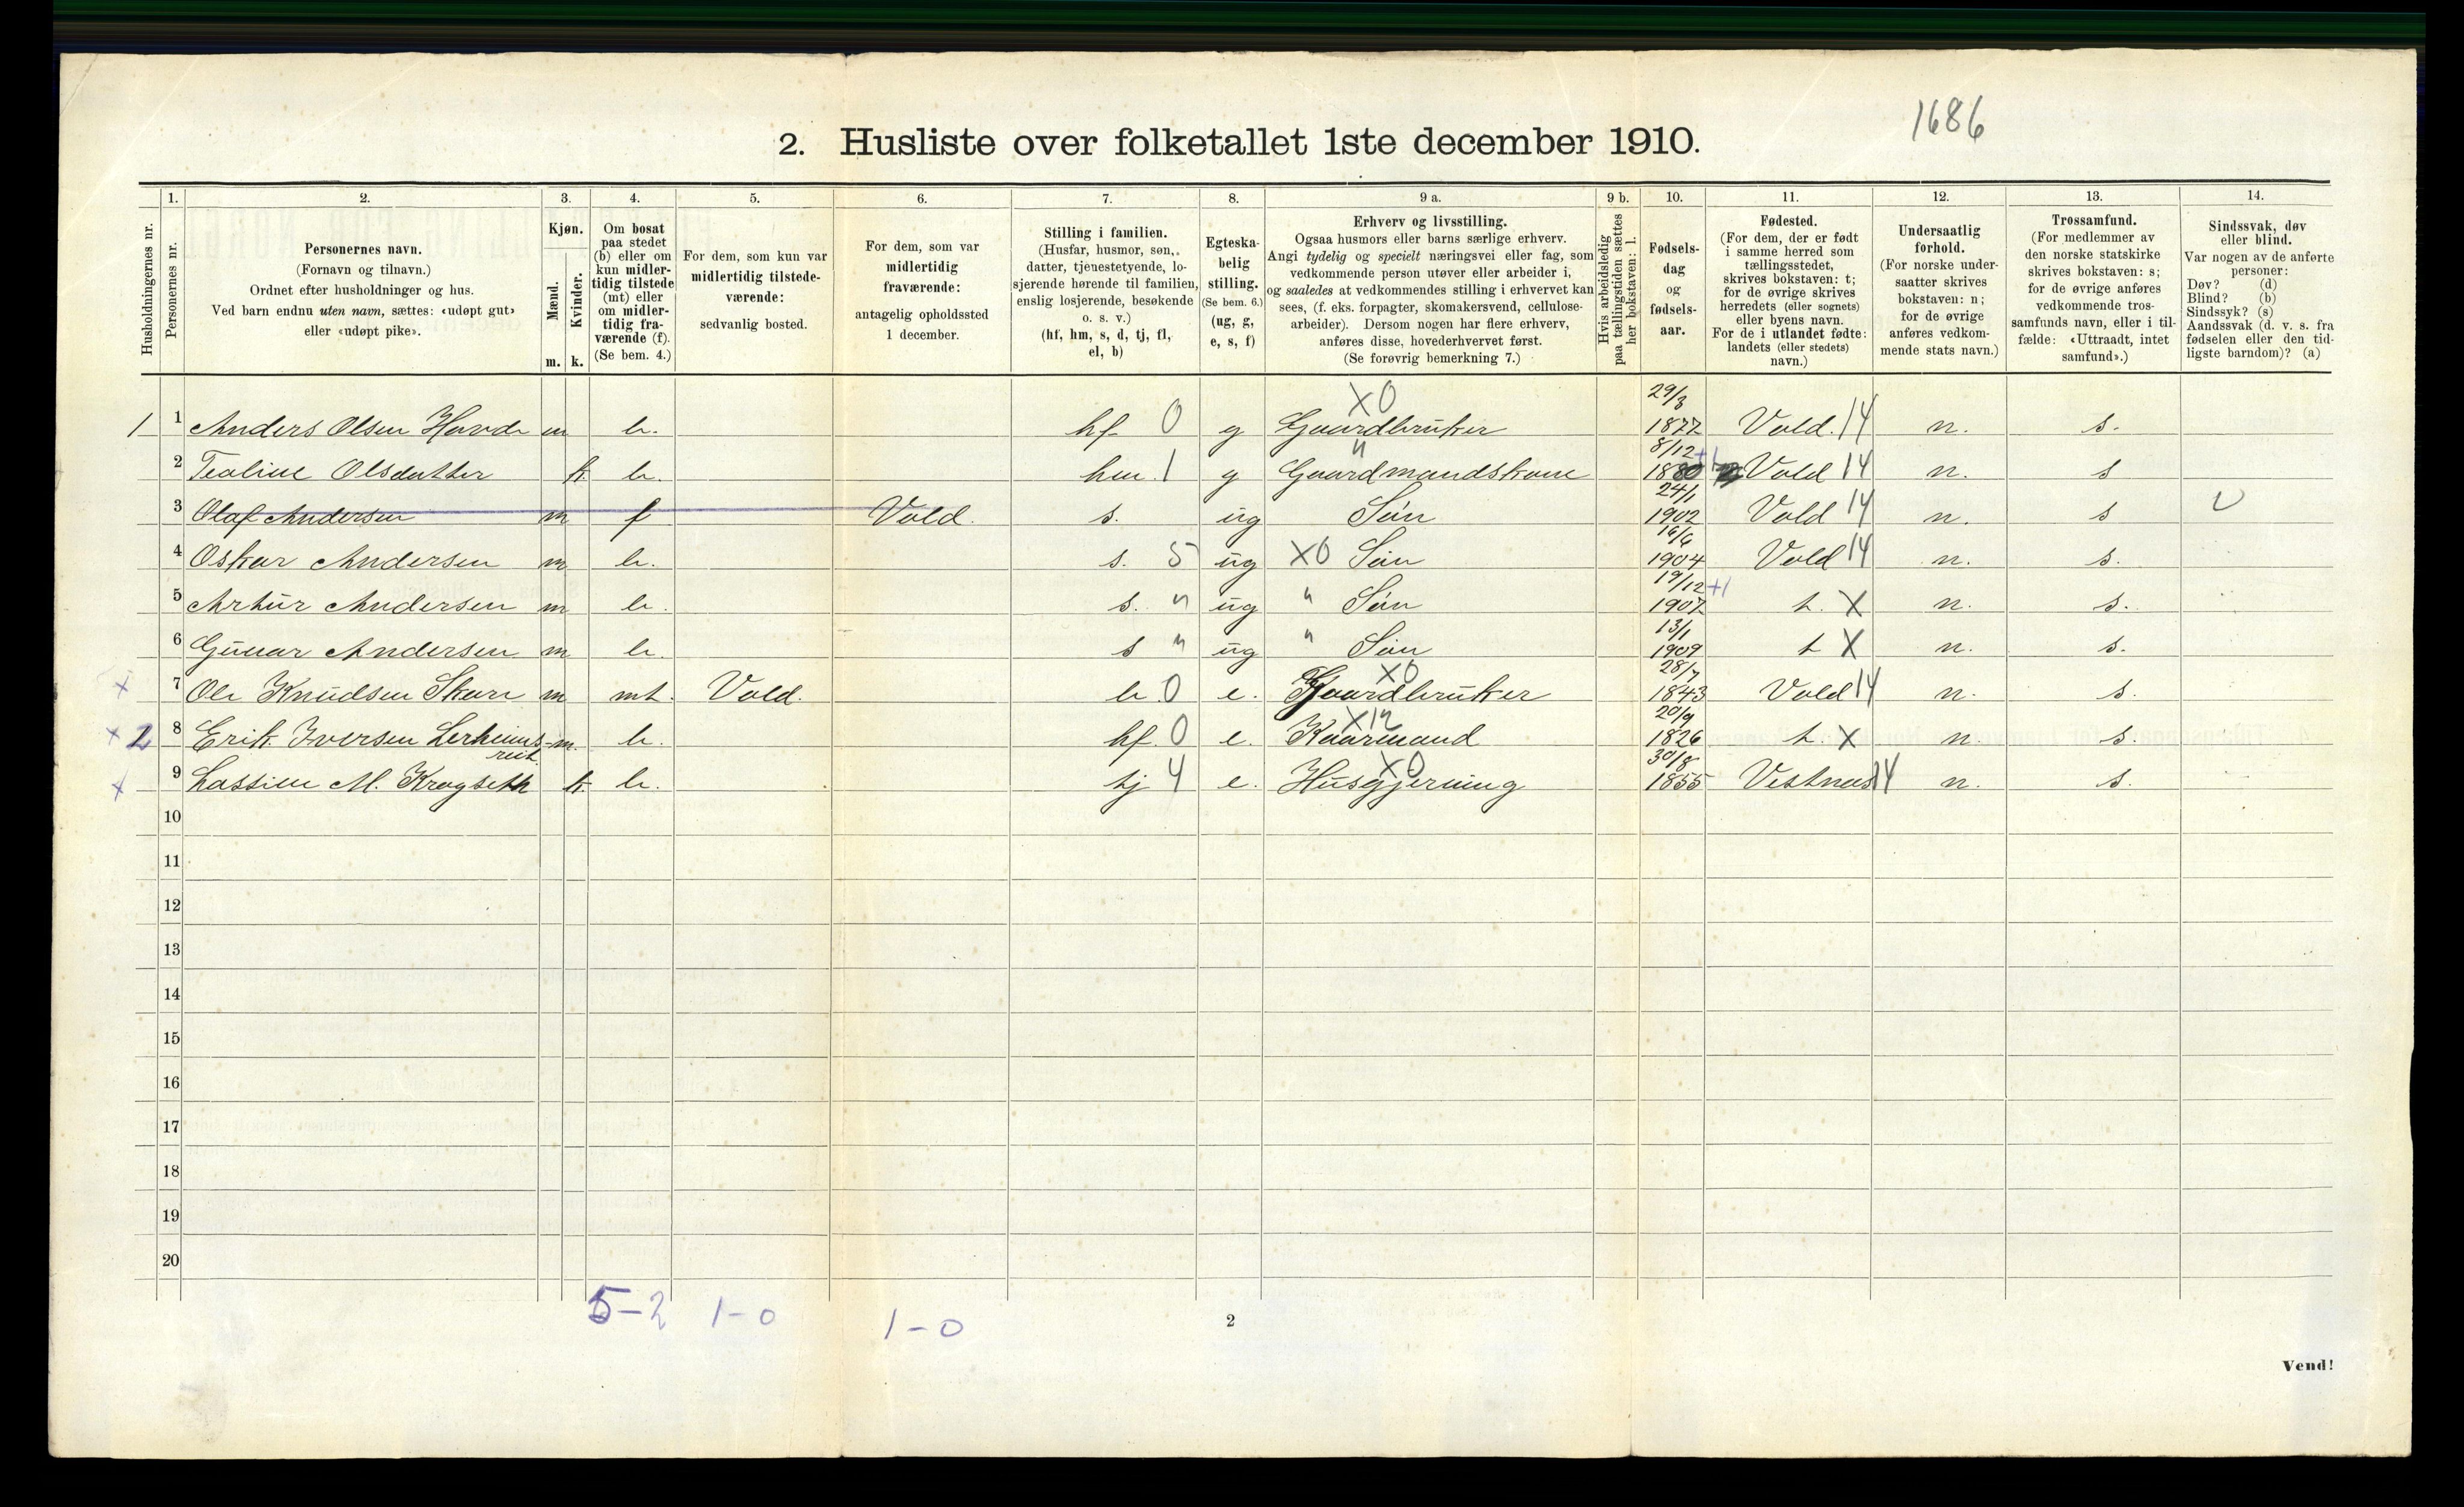 1686
2. Husliste over folketallet 1ste december 1910.
1. 2. 3. 4. 5. 6. 7. 8. 9 a. 9 b. 10. 11. 12. 13. 14.
Husholdningernes nr.
Personernes nr.
Personernes navn.
(Fornavn og tilnavn.)
Ordnet efter husholdninger og hus.
Ved barn endnu uten navn, sættes: «udøpt gut»
eller «udøpt pike».
Kjøn.
Mænd.
Kvinder.
m. k.
Om bosat
paa stedet
(b) eller om
kun midler-
tidig tilstede
(mt) eller
om midler-
tidig fra-
værende (f).
(Se bem. 4.)
For dem, som kun var
midlertidig tilstede-
værende:
sedvanlig bosted.
For dem, som var
midlertidig
fraværende:
antagelig opholdssted
1 december.
Stilling i familien.
(Husfar, husmor, søn,
datter, tjenestetyende, lo-
sjerende hørende til familien,
enslig losjerende, besøkende
o. s. v.)
(hf, hm, s, d, tj, fl,
el, b)
Egteska-
belig
stilling.
(Se bem. 6.)
(ug, g,
e, s, f)
Erhverv og livsstilling.
Ogsaa husmors eller barns særlige erhverv.
Angi tydelig og specielt næringsvei eller fag, som
vedkommende person utøver eller arbeider i,
og saaledes at vedkommendes stilling i erhvervet kan
sees, (f. eks. forpagter, skomakersvend, cellulose-
arbeider). Dersom nogen har flere erhverv,
anføres disse, hovederhvervet først.
(Se forøvrig bemerkning 7.)
Hvis arbeidsledig
paa tællingstiden sættes
her bokstaven: l.
Fødsels-
dag
og
fødsels-
aar.
Fødested.
(For dem, der er født
i samme herred som
tællingsstedet,
skrives bokstaven: t;
for de øvrige skrives
herredets (eller sognets)
eller byens navn.
For de i utlandet fødte:
landets (eller stedets)
navn.)
Undersaatlig
forhold.
(For norske under-
saatter skrives
bokstaven: n;
for de øvrige
anføres vedkom-
mende stats navn.)
Trossamfund.
(For medlemmer av
den norske statskirke
skrives bokstaven: s;
for de øvrige anføres
vedkommende tros-
samfunds navn, eller i til-
fælde: «Uttraadt, intet
samfund».)
Sindssvak, døv
eller blind.
Var nogen av de anførte
personer:
Døv? (d)
Blind? (b)
Sindssyk? (s)
Aandssvak (d. v. s. fra
fødselen eller den tid-
ligste barndom)? (a)
1 1 Anders Olsen Havde m b. hf 0 g X0 Gaardbruker 29/3 1877 Vold. 14 n. s.
2 Teoline Olsdatter k. b. hm. 1 g " Gaardmandskone 8/12 +1 1880 Vold 14 n. s
3 Olaf Andersen m f Vold. s. ug Søn 24/1 1902 Vold 14 n. s
4 Oskar Andersen m b. s. 5 ug X0 Søn 16/6 1904 Vold 14 n. s.
5 Artur Andersen m b. s. " ug " Søn 19/12 +1 1907 t. X n. s.
6 Gunar Andersen m b. s " ug " Søn 13/1 1909 t X n. s.
x 7 Ole Knudsen Skare m mt. Vold. b. 0 e. X0 Gaardbruker 28/7 1843 Vold 14 n. s.
x 2 8 Erik Iversen Lerheims- m. b. hf. 0 e. X12 Kaarmand 20/9 1826 t. X n. s.
reit.
x 9 Lassine M. Kragseth k. b. tj 4 e. X0 Husgjerning 30/8 1855 Vestnes 14 n. s.
10
11
12
13
14
15
16
17
18
19
20
5-2 1-0 1-0
2
Vend!